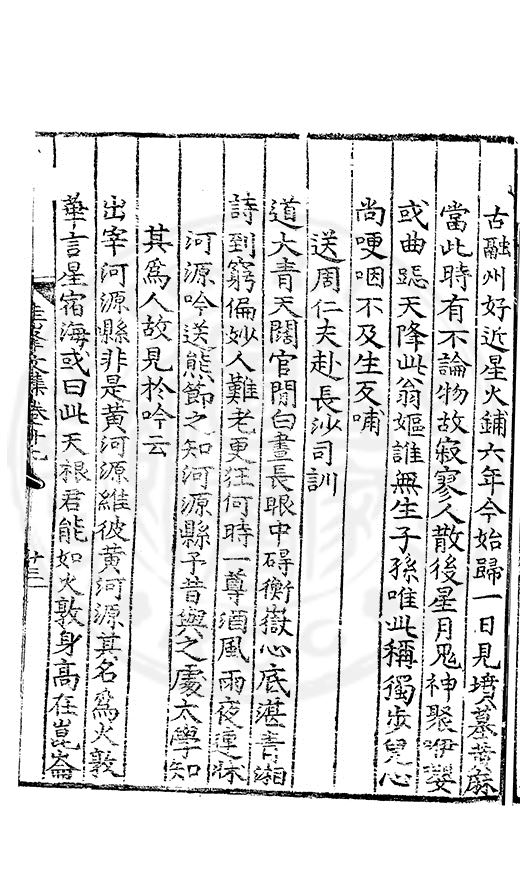 古融州好近星火鋪六年今始歸一日見墳墓黄麻
當此時有不論物故寂寥人散後星月鬼神聚咿嬰
或曲跽天降此翁嫗誰無生子孫唯此稱獨步兒心
尚哽咽不及生反哺
送周仁夫赴長沙司訓
道大青天闊官閒白晝長眼中碍衡嶽心底湛青湘
詩到窮偏妙人難老更狂何時一尊酒風雨夜連牀
河源吟送熊節之知河源縣予昔與之處太學知
其爲人故見於吟云
出宰河源縣非是黄河源維彼黄河源其名爲火敦
華言星宿海或曰此天根君能如火敦身高在崑崙
圭峯文集卷廿九
廿三